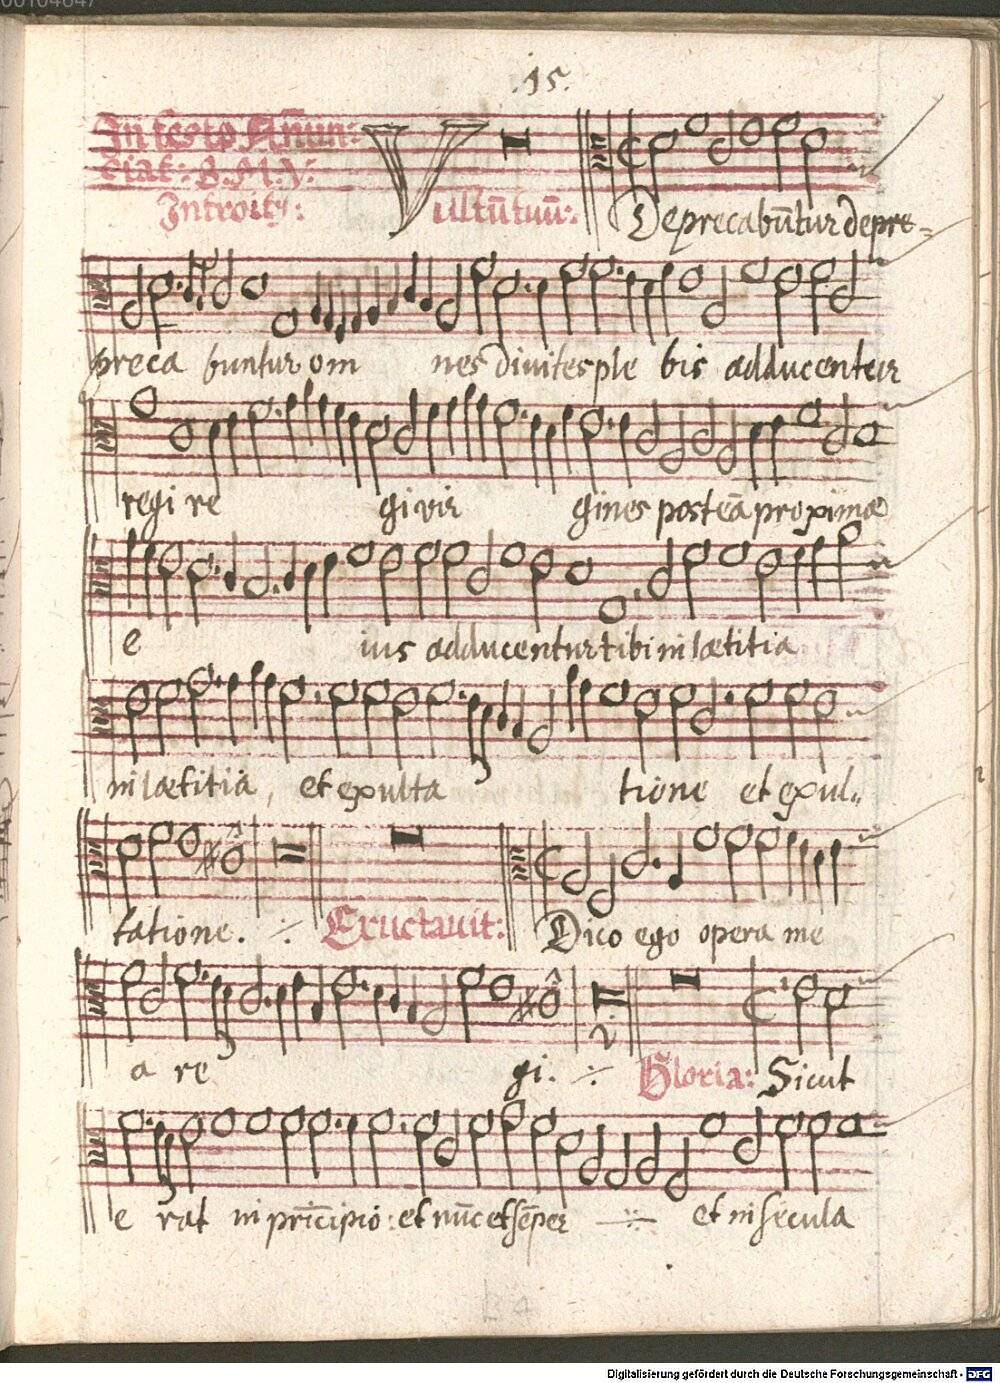 00104647
.15.
In festo Anun:
tiat: B. M. V:
Introitꝰ: Vultū tuū:. Deprecabūtur depre-
preca buntur om nes divites ple bis adducentur
regi re gi vir gines posteā proximæ
e ius adducentur tibi in lætitia
in lætitia, et exulta tione et exul-
tatione. ·/· Eructavit: Dico ego opera me
a re gi. ·/· Gloria: Sicut
e rat in prīcipio: et nūc et sēper ·/· et in secula
Digitalisierung gefördert durch die Deutsche Forschungsgemeinschaft - DFG